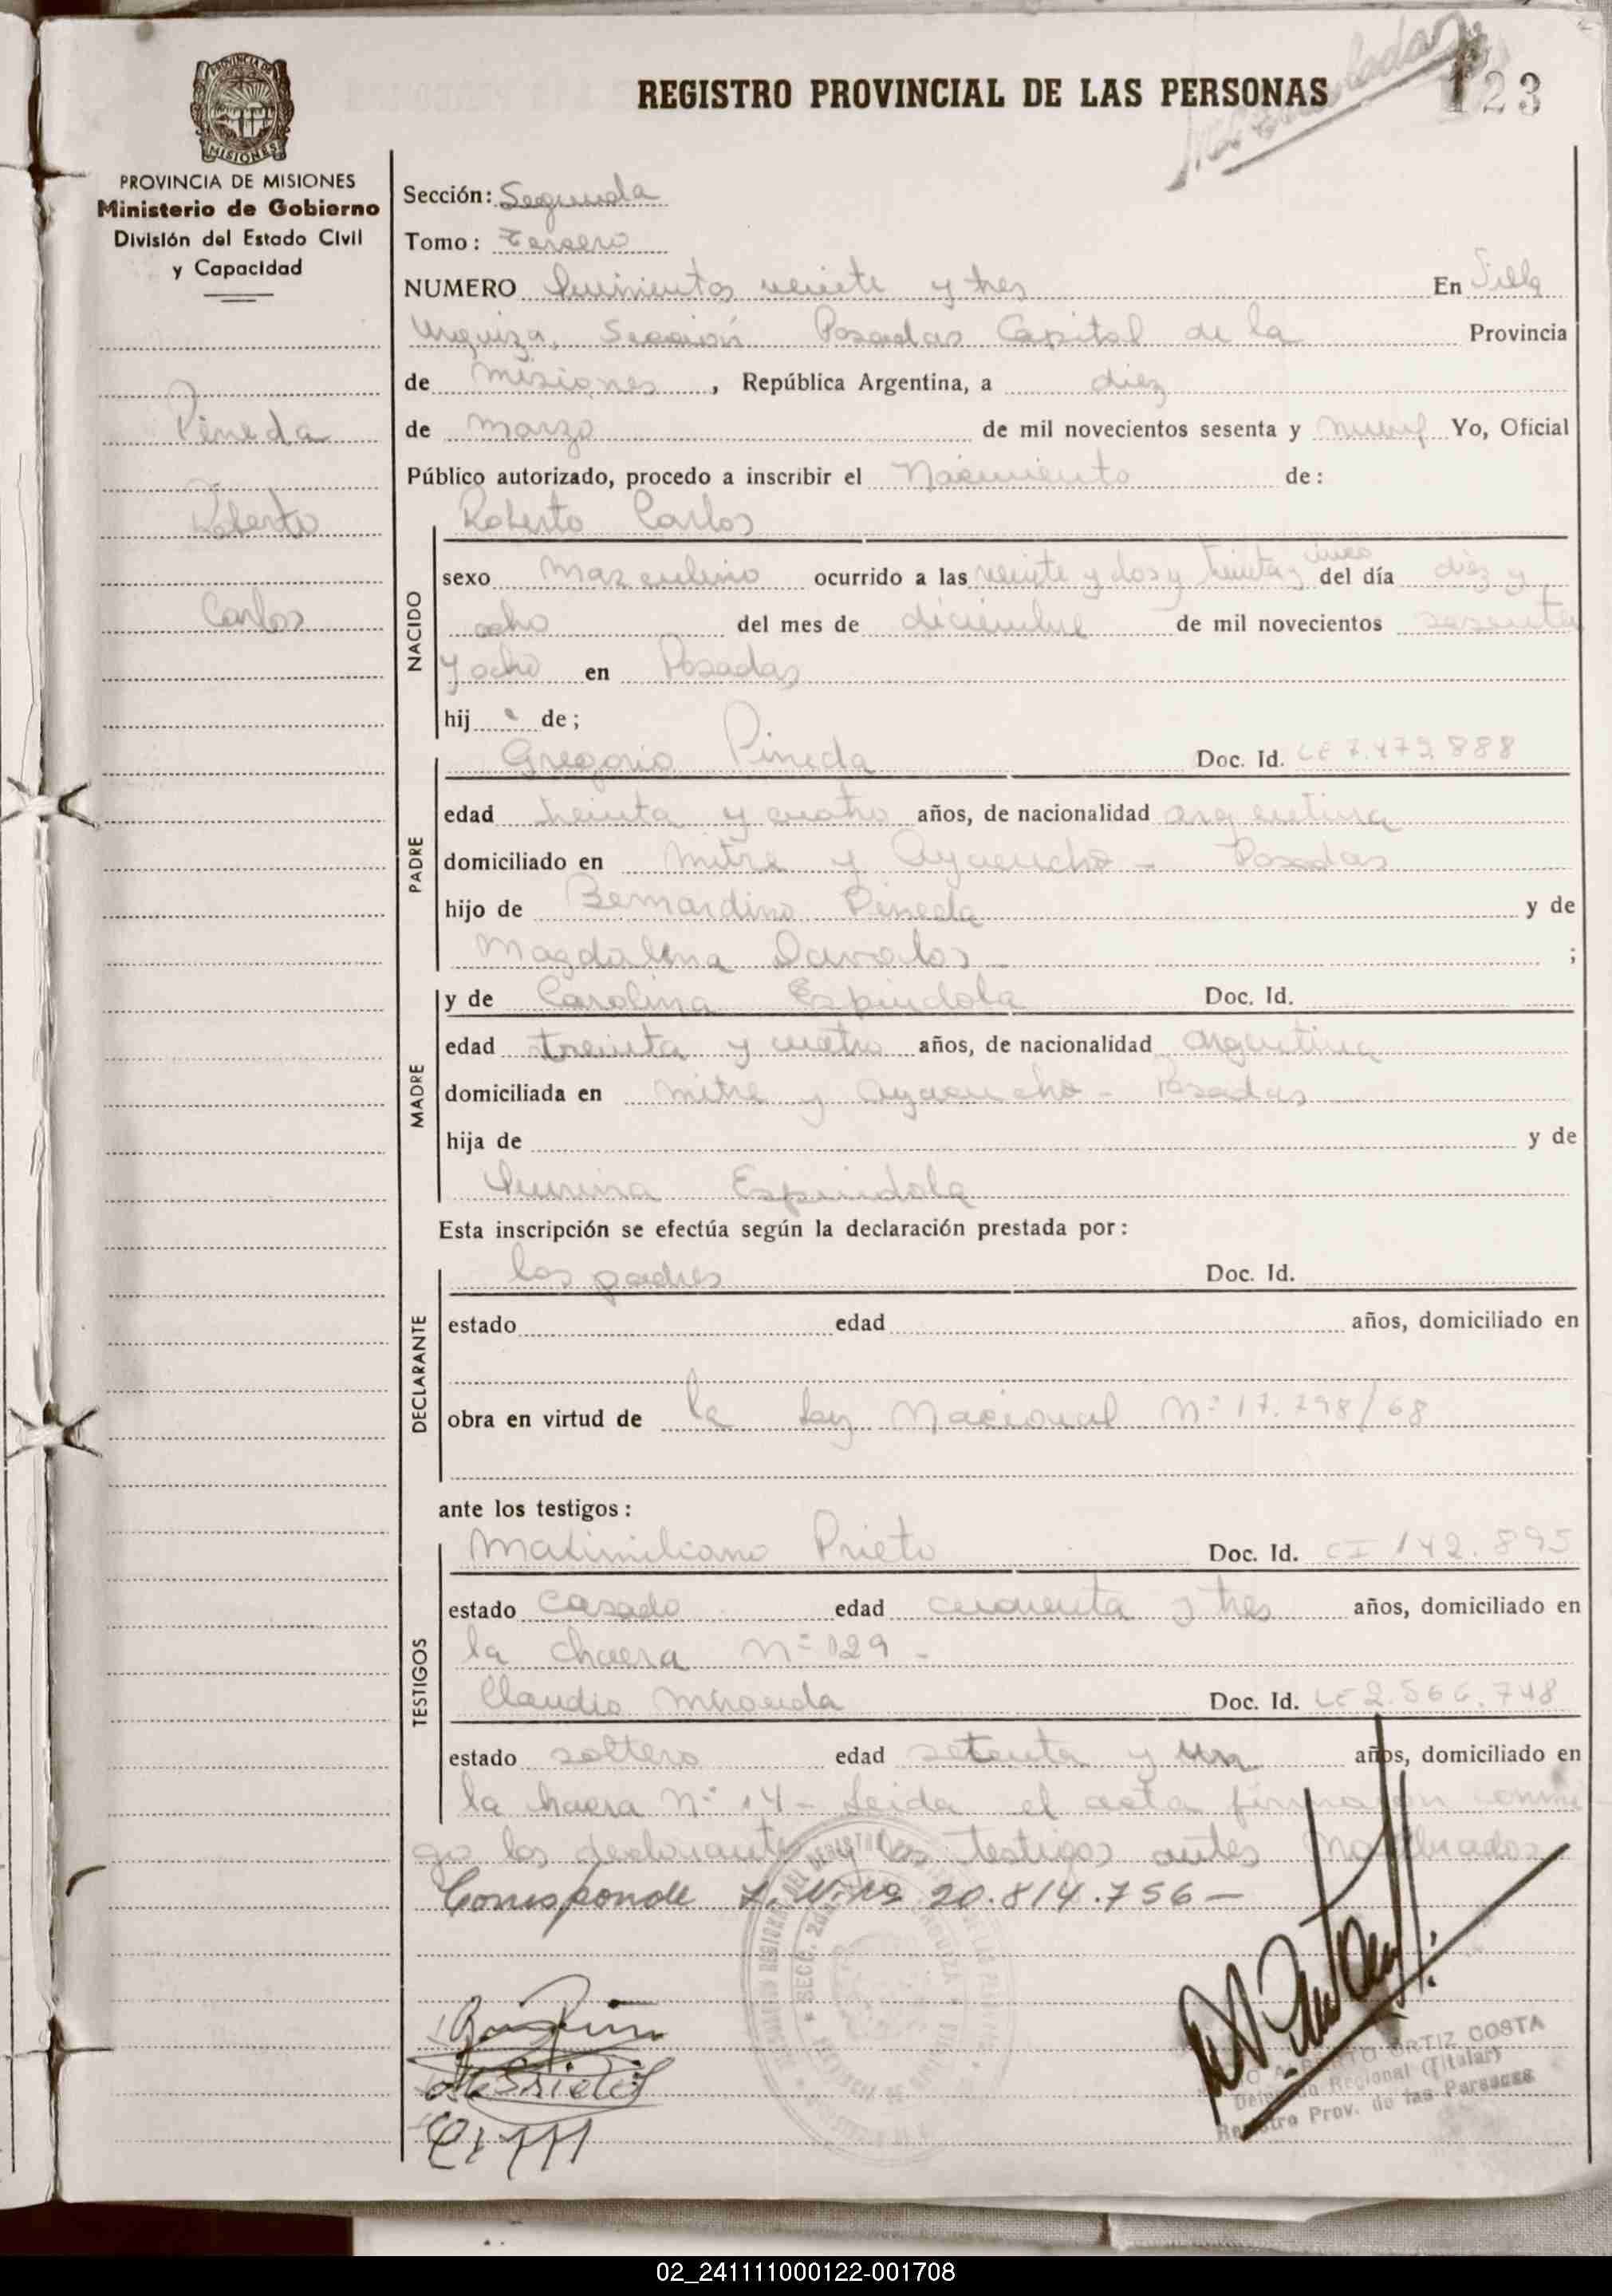 REGISTRO PROVINCIAL DE LAS PERSONAS
123
PROVINCIA DE MISIONES
Ministerio de Gobierno
División del Estado Civil
y Capacidad
Pineda
Roberto
Carlos
Sección: Segunda
Tomo: Tercero
NUMERO Quinientos veinte y tres En Villa
Urquiza, Sección Posadas Capital de la Provincia
de Misiones, República Argentina, a diez
de marzo de mil novecientos sesenta y nueve Yo, Oficial
Público autorizado, procedo a inscribir el Nacimiento de:
NACIDO
Roberto Carlos
sexo Masculino ocurrido a las veinte y dos y treinta y cinco del día diez y
ocho del mes de diciembre de mil novecientos sesenta
y ocho en Posadas
hij o de;
PADRE
Gregorio Pineda Doc. Id. LE 7.479.888
edad treinta y cuatro años, de nacionalidad argentina
domiciliado en Mitre y Ayacucho - Posadas
hijo de Bernardino Pineda y de
Magdalena Davalos ;
MADRE
y de Carolina Espindola Doc. Id.
edad treinta y cuatro años, de nacionalidad argentina
domiciliada en Mitre y Ayacucho - Posadas
hija de y de
Espindola
Esta inscripción se efectúa según la declaración prestada por:
DECLARANTE
los padres Doc. Id.
estado edad años, domiciliado en
obra en virtud de la Ley Nacional Nº 17.298/68
ante los testigos:
TESTIGOS
Maximiliano Prieto Doc. Id. CI 142.895
estado casado edad cincuenta y tres años, domiciliado en
la chacra Nº 129 -
Claudio Miranda Doc. Id. LE 2.566.748
estado soltero edad setenta y un años, domiciliado en
la chacra Nº 14 - Leida el acta firmaron conmi
go los declarantes y los testigos antes nombrados
Corresponde 20.814.756 -
ORTIZ COSTA
Delegado Regional (Titular)
Registro Prov. de las Personas
02_241111000122-001708